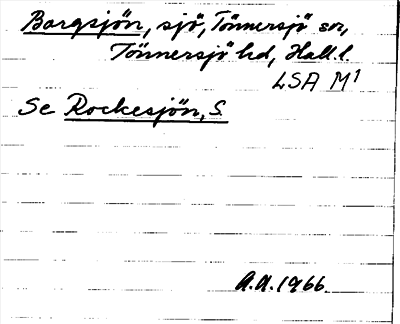 Bargsjön, sjö, Tönnersjö sn,
Tönnersjö hd, Hall.l.
LSA M1
Se Rockesjön, S.
A.A.1966.